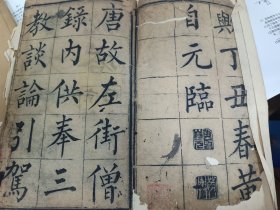 興丁丑春黄
自元臨
唐故左街僧
録内供奉三
教談論引駕